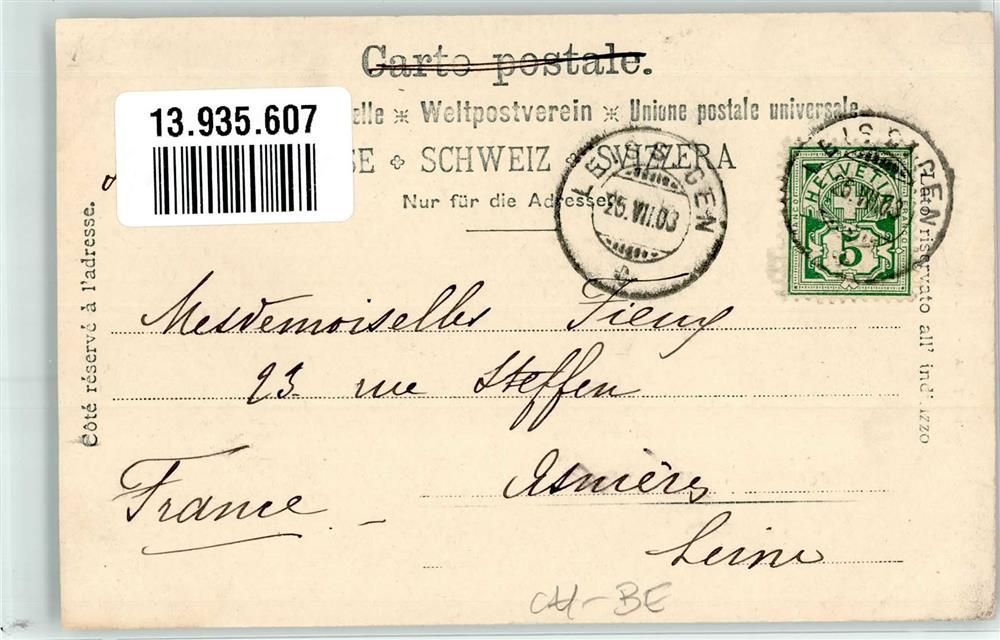 Carte postale.
13.935.607
elle ※ Weltpostverein ※ Unione postale universale
SE ✧ SCHWEIZ ✧ SVIZZERA
Nur für die Adresse
LEISSIGEN
25.VII.03
LEISSIGEN
HELVETIA
FRANCO
5
Côté réservé à l'adresse.
Lato riservato all' indirizzo
Mesdemoiselles Fieux
23 rue Steffen
Asnières
France -
Seine
CH-BE